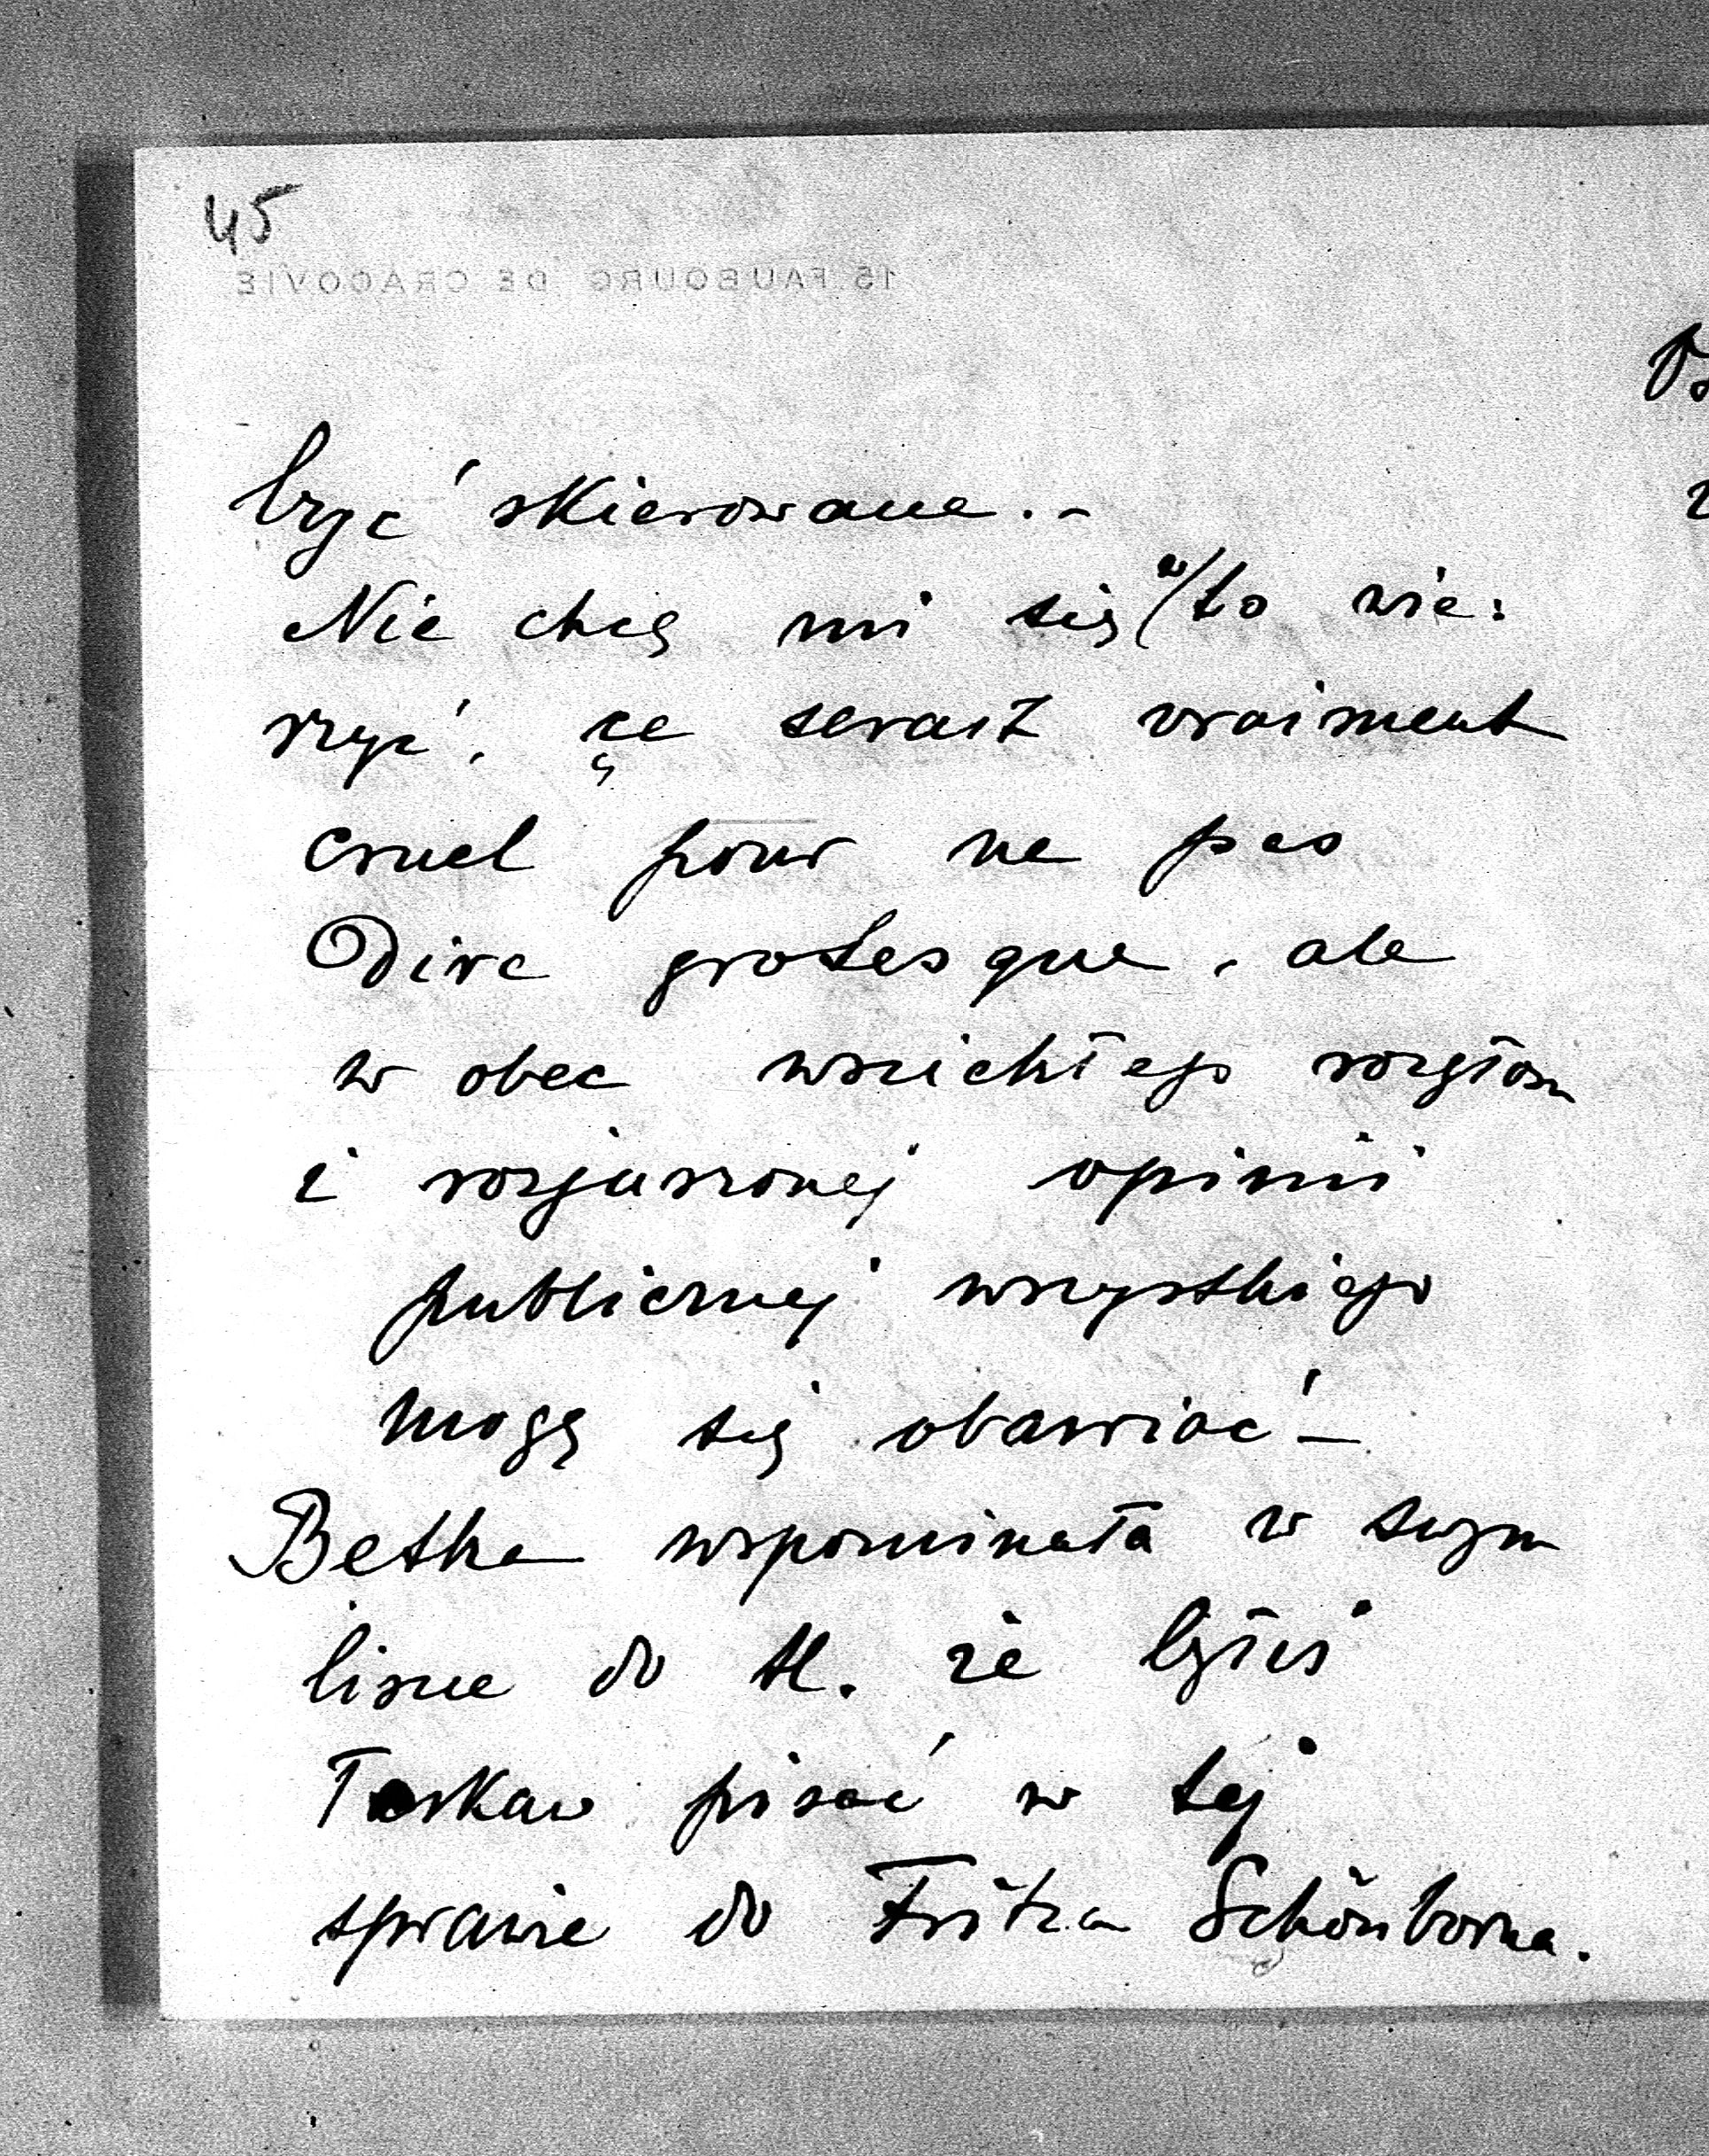 45
15 FAUBOURG DE CRACOVIE
być skierowane. -
Nie chcę mi się w/to wie:
rzyć, ça serait vraiment
cruel pour ne pas
Dire grotesque, ale
w obec wściekłego rozgłosu
i rozjuszonej opinii
publicznej wszystkiego
mogę się obawiać -
Betka wspominała w swym
liście do M. że byłeś
łaskaw pisać w tej
sprawie do Fritza Schönborna.